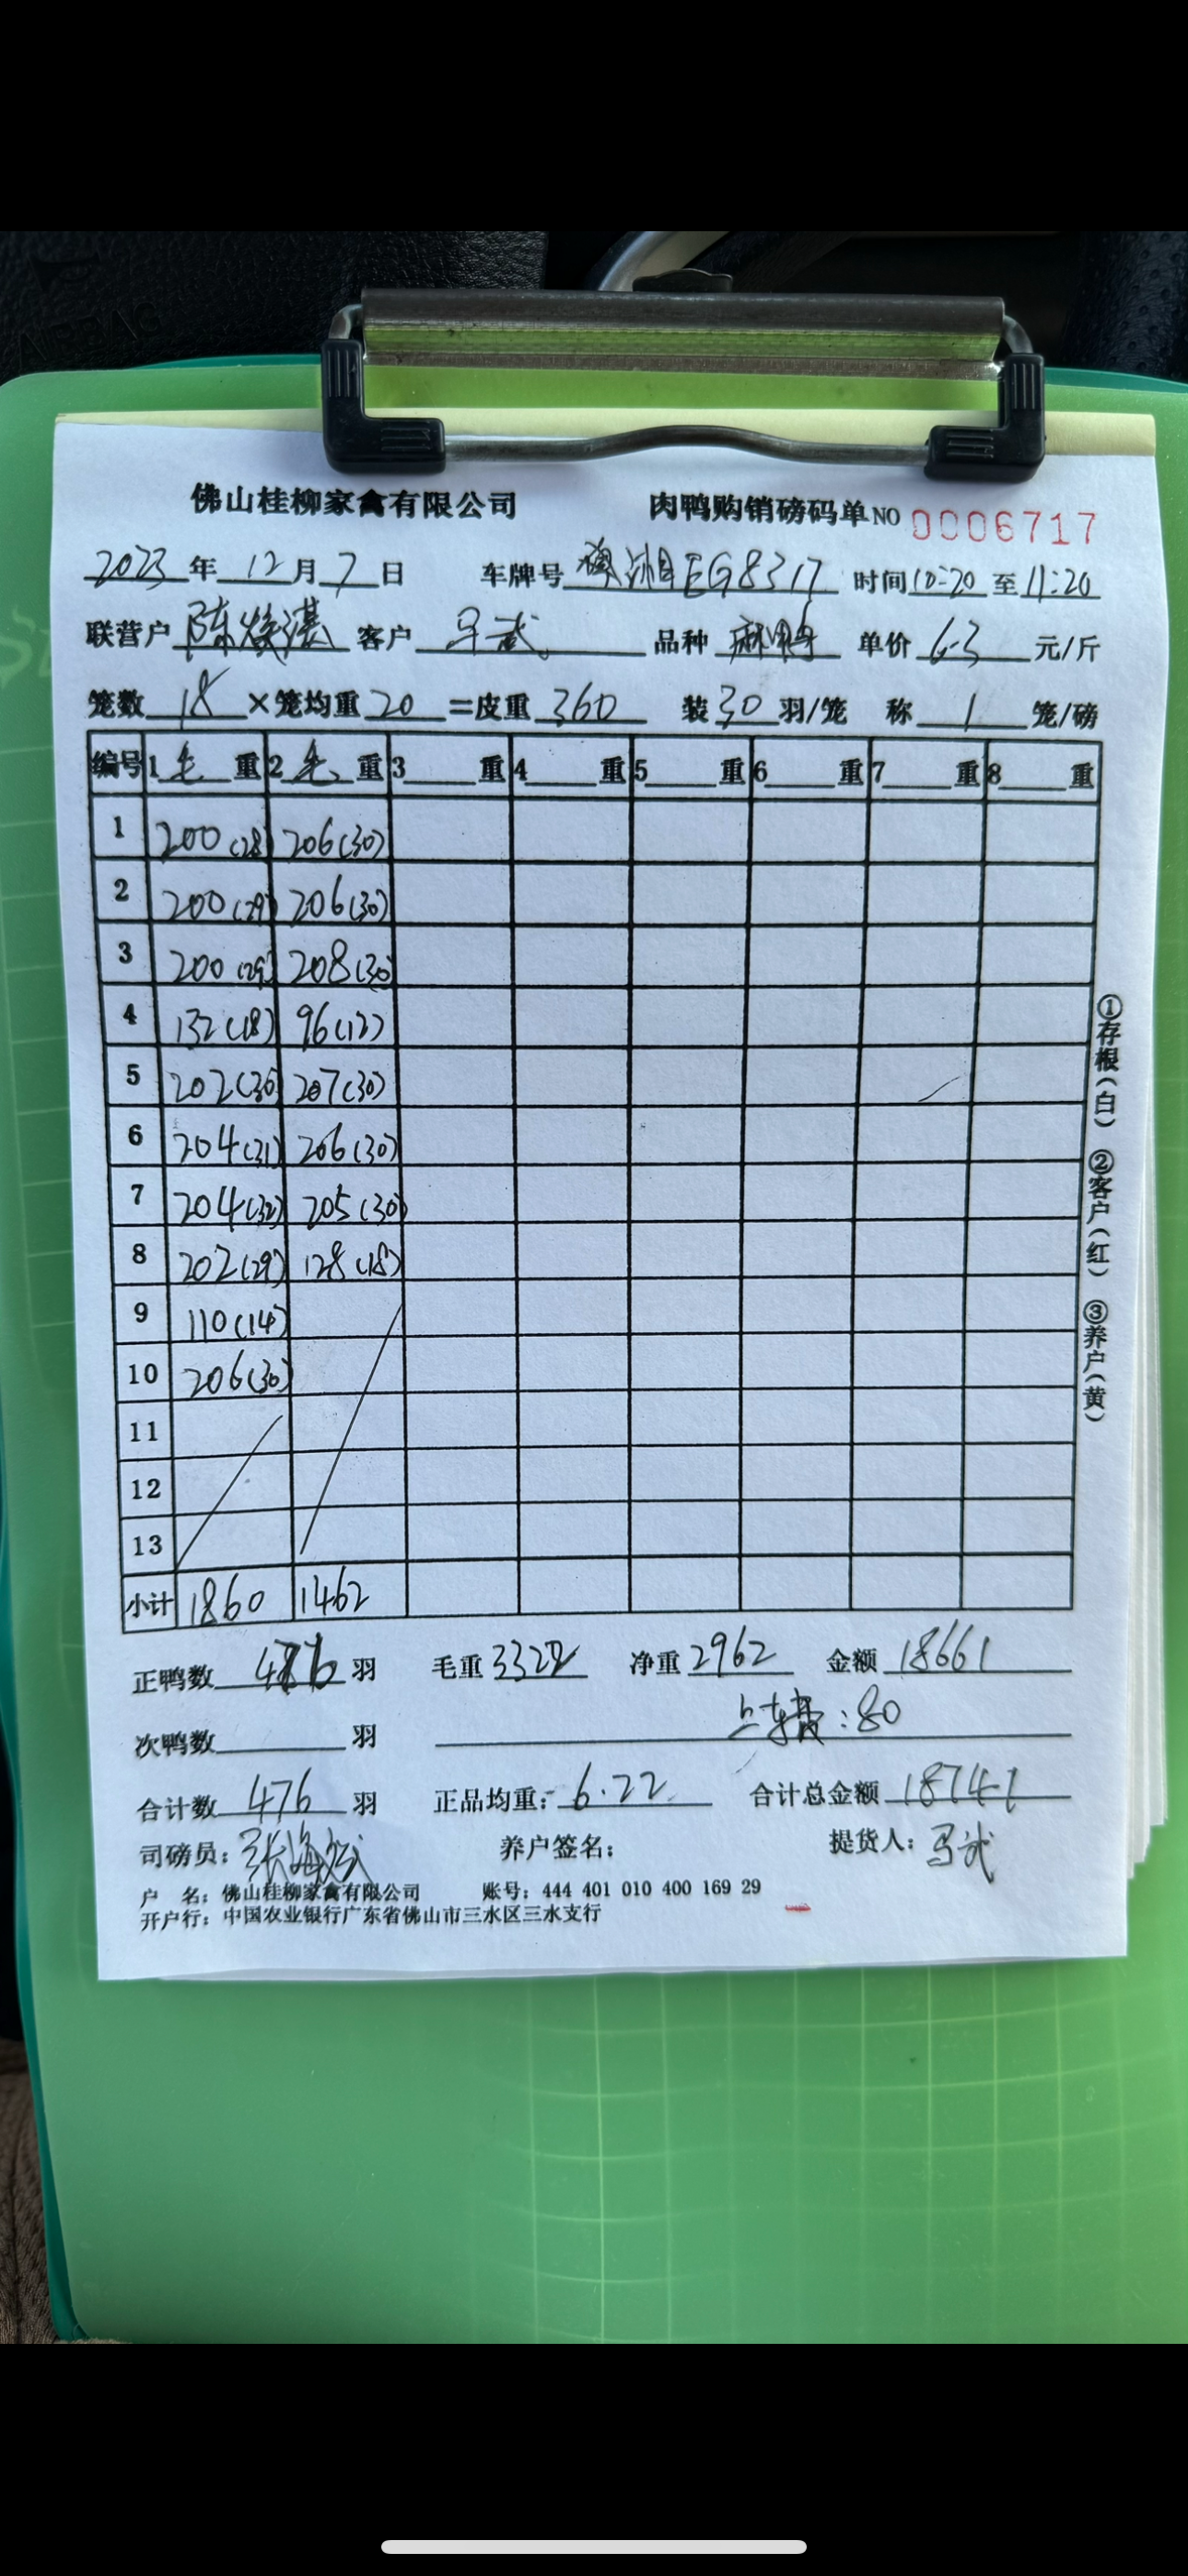 佛山桂柳家禽有限公司 肉鸭购销磅码单 NO 0006717
2023年12月7日 车牌号 湘EG8317 时间10:20至11:20
联营户 陈焕湛 客户 马武 品种 麻鸭 单价 6.3 元/斤
笼数 18 ×笼均重 20 =皮重 360 装30羽/笼 称 1 笼/磅
编号 1 毛 重 2 毛 重 3 重 4 重 5 重 6 重 7 重 8 重
1 200(28) 206(30)
2 200(29) 206(30)
3 200(29) 208(30)
4 132(18) 96(12)
5 202(30) 207(30)
6 204(31) 206(30)
7 204(32) 205(30)
8 202(29) 128(18)
9 110(14)
10 206(30)
11
12
13
小计 1860 1462
正鸭数 476 羽 毛重 3322 净重 2962 金额 18661
次鸭数 羽 上车费:80
合计数 476 羽 正品均重: 6.22 合计总金额 18741
司磅员: 张海 养户签名: 提货人: 马武
户 名: 佛山桂柳家禽有限公司 账号: 444 401 010 400 169 29
开户行: 中国农业银行广东省佛山市三水区三水支行
①存根(白) ②客户(红) ③养户(黄)